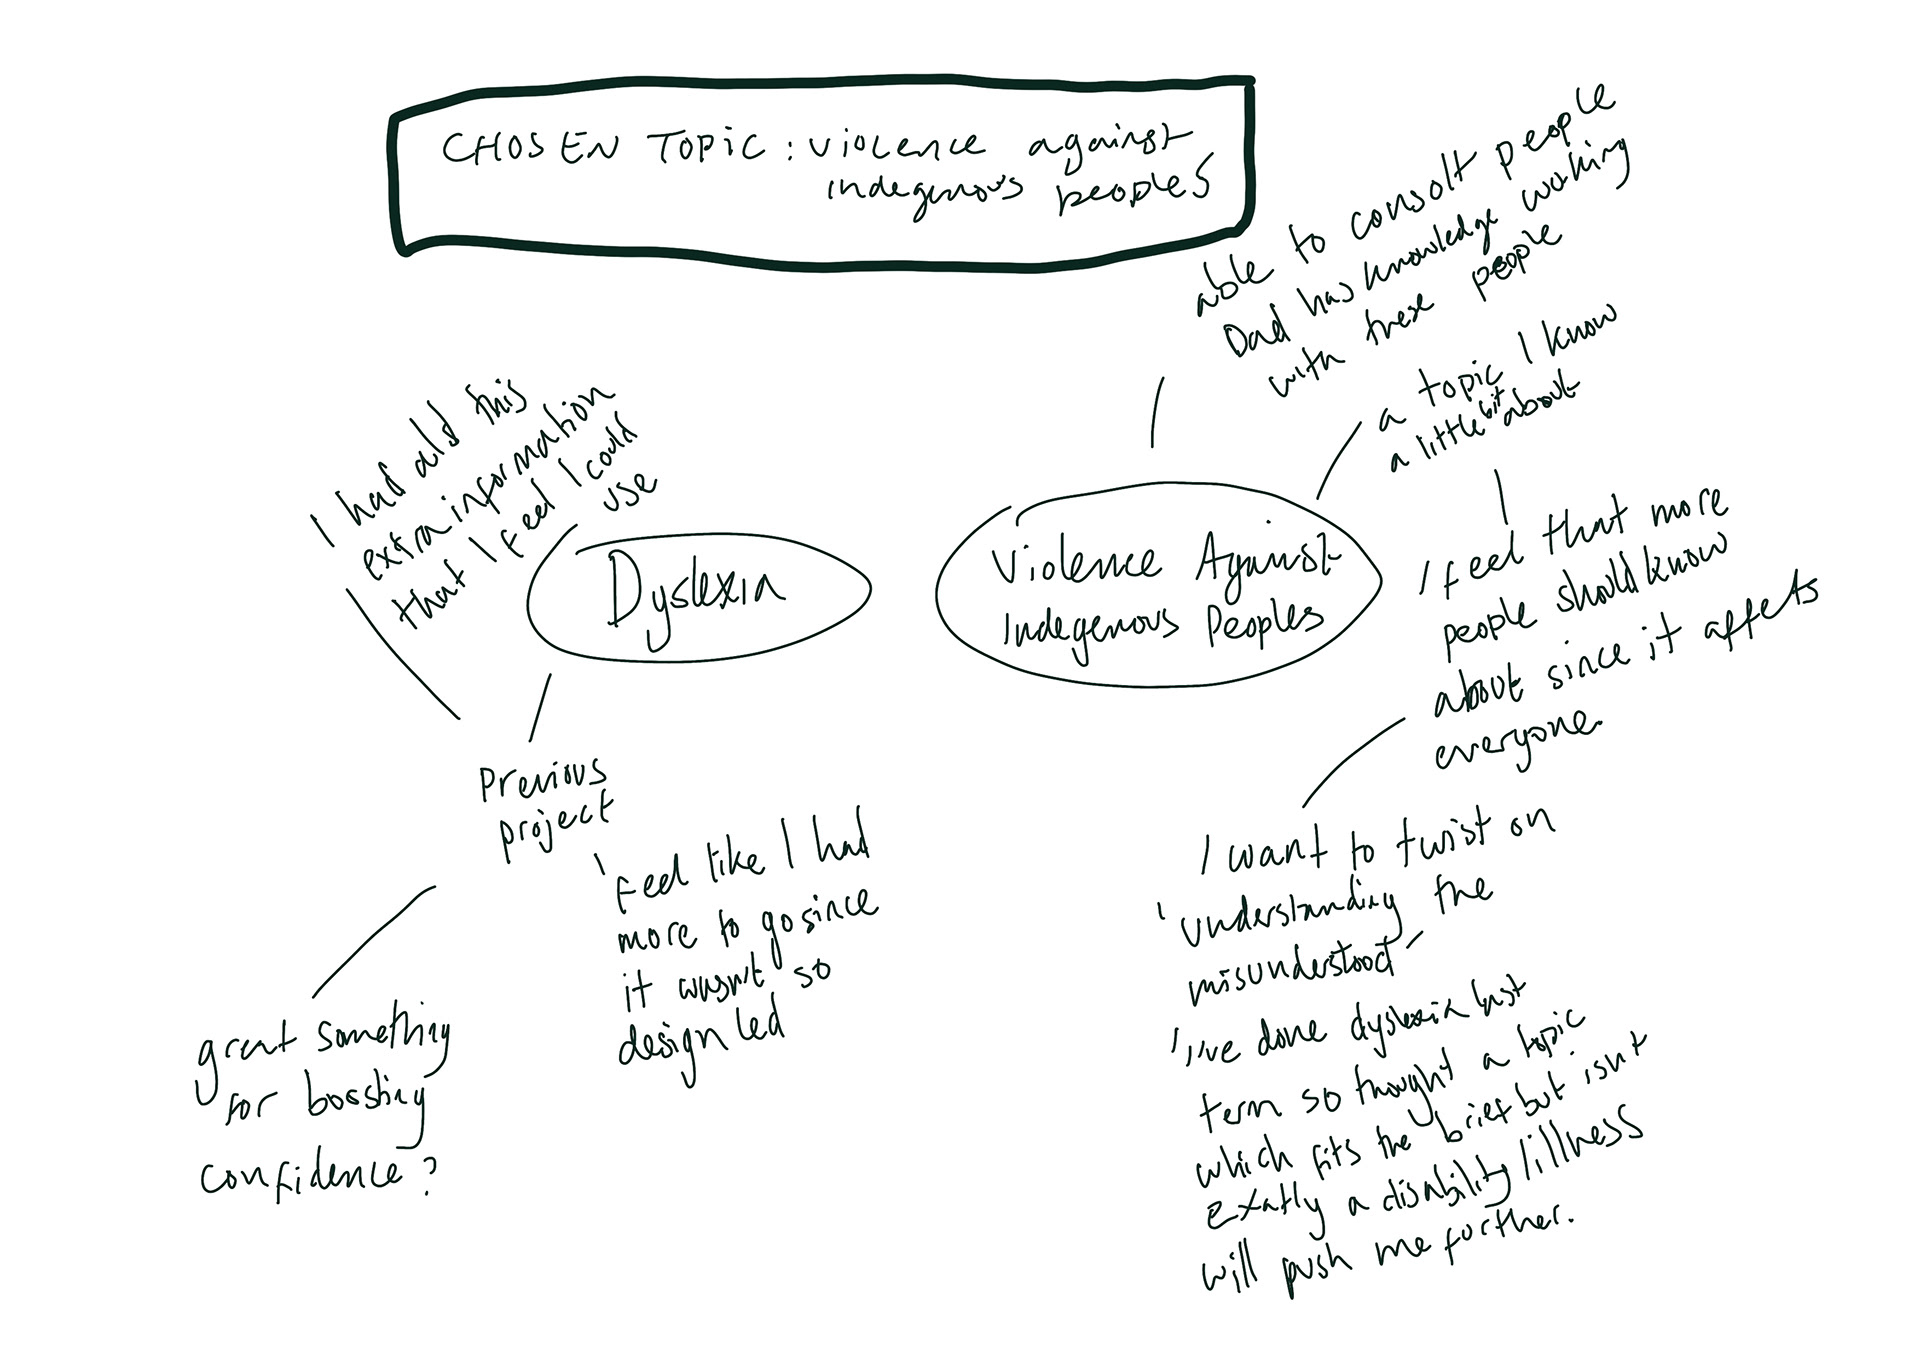 CHOSEN TOPIC : violence against
indegenous peoples
able to consolt people
Dad has knowledge working
with these people
a topic I know
a little bit about
I feel that more
people should know
about since it affects
everyone.
I want to twist on
'understanding the
misunderstood'
I've done dyslexia last
term so thought a topic
which fits the brief but isnt
exatly a disability/illness
will push me further.
Violence Against
Indegenous Peoples
I had all this
extra information
that I feel I could
use
Dyslexia
Previous
project
feel like I had
more to go since
it wasnt so
design led
great something
for boosting
confidence?